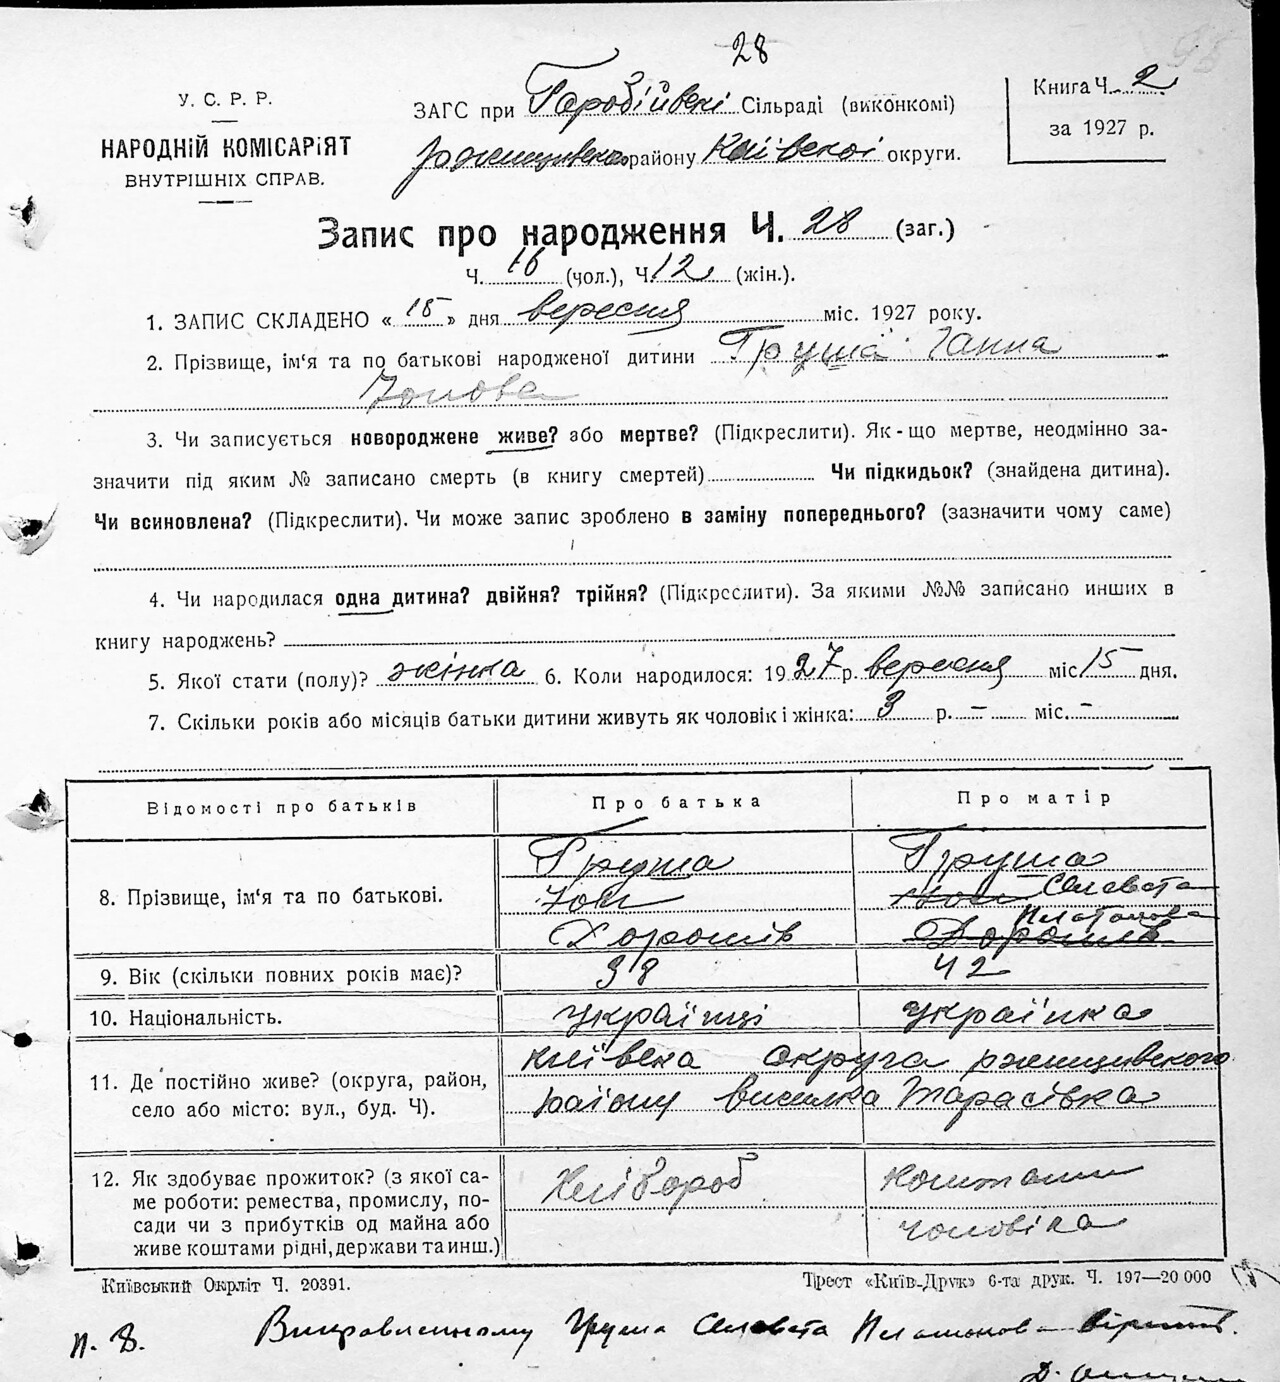 28
У. С. Р. Р.
НАРОДНІЙ КОМІСАРІЯТ
ВНУТРІШНІХ СПРАВ.
ЗАГС при Горобіївскі Сільраді (виконкомі)
району Київскоі округи.
Книга Ч. 2
за 1927 р.
Запис про народження Ч. 28 (заг.)
Ч. 16 (чол.), Ч. 12 (жін.).
1. ЗАПИС СКЛАДЕНО « 15 » дня вересня міс. 1927 року.
2. Прізвище, ім‘я та по батькові народженої дитини Груша Ганна
Юхова
3. Чи записується новороджене живе? або мертве? (Підкреслити). Як-що мертве, неодмінно за-
значити під яким № записано смерть (в книгу смертей) Чи підкидьок? (знайдена дитина).
Чи всиновлена? (Підкреслити). Чи може запис зроблено в заміну попереднього? (зазначити чому саме)
4. Чи народилася одна дитина? двійня? трійня? (Підкреслити). За якими №№ записано инших в
книгу народжень?
5. Якої стати (полу)? жінка 6. Коли народилося: 1927 р. вересня міс 15 дня.
7. Скільки років або місяців батьки дитини живуть як чоловік і жінка: 3 р. – міс. –
Відомості про батьків Про батька Про матір
8. Прізвище, ім‘я та по батькові.
Груша Груша
Юхим Селевета
Дорошів Платонова
9. Вік (скільки повних років має)? 38 42
10. Національність. українці українка
11. Де постійно живе? (округа, район,
село або місто: вул., буд. Ч).
київска округа ржищивского
району висилка Тарасівка
12. Як здобуває прожиток? (з якої са-
ме роботи: ремества, промислу, по-
сади чи з прибутків од майна або
живе коштами рідні, держави та инш.)
Хлібороб коштами
чоловіка
Київський Окрліт Ч. 20391.
Трест «Київ-Друк» 6-та друк. Ч. 197—20 000
п. 8. Виправленному Груша Селевета Платонова вірить.